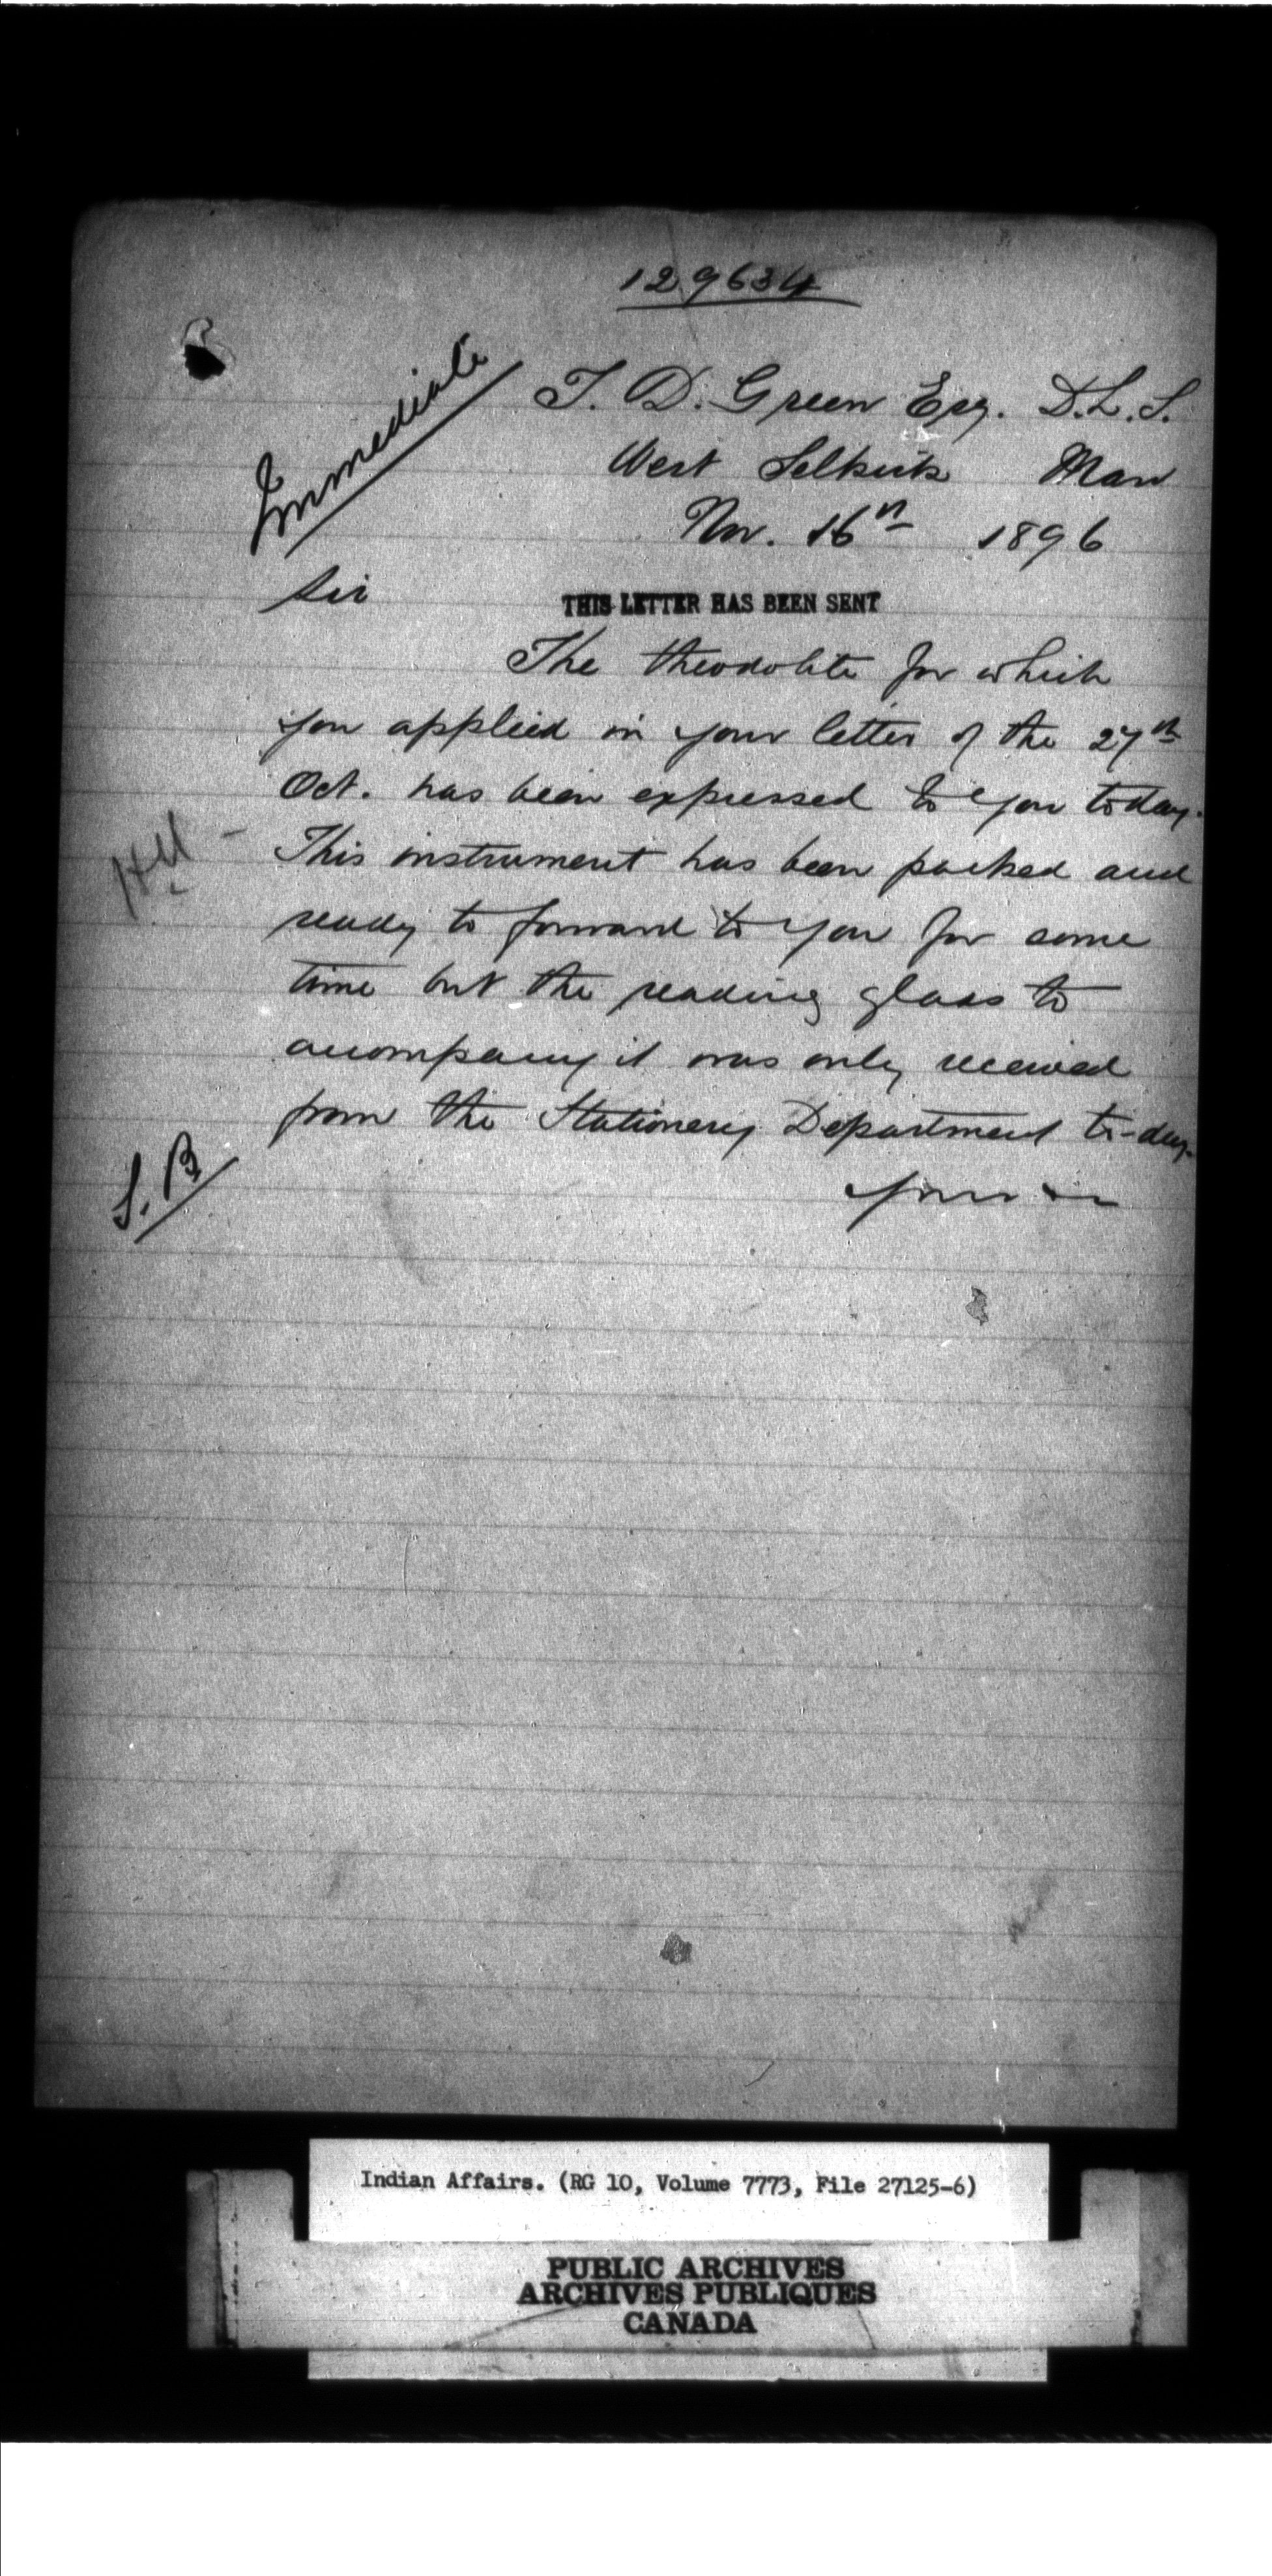 129634
Immediate
T. D. Green Esq. D.L.S.
West Selkirk Man
Nov. 16th 1896
Sir
THIS LETTER HAS BEEN SENT
The theodolite for which
you applied in your letter of the 27th
Oct. has been expressed to you today.
This instrument has been packed and
ready to forward to you for some
time but the reading glass to
accompany it was only received
from the Stationery Department to-day.
S. B
Indian Affairs. (RG 10, Volume 7773, File 27125-6)
PUBLIC ARCHIVES
ARCHIVES PUBLIQUES
CANADA